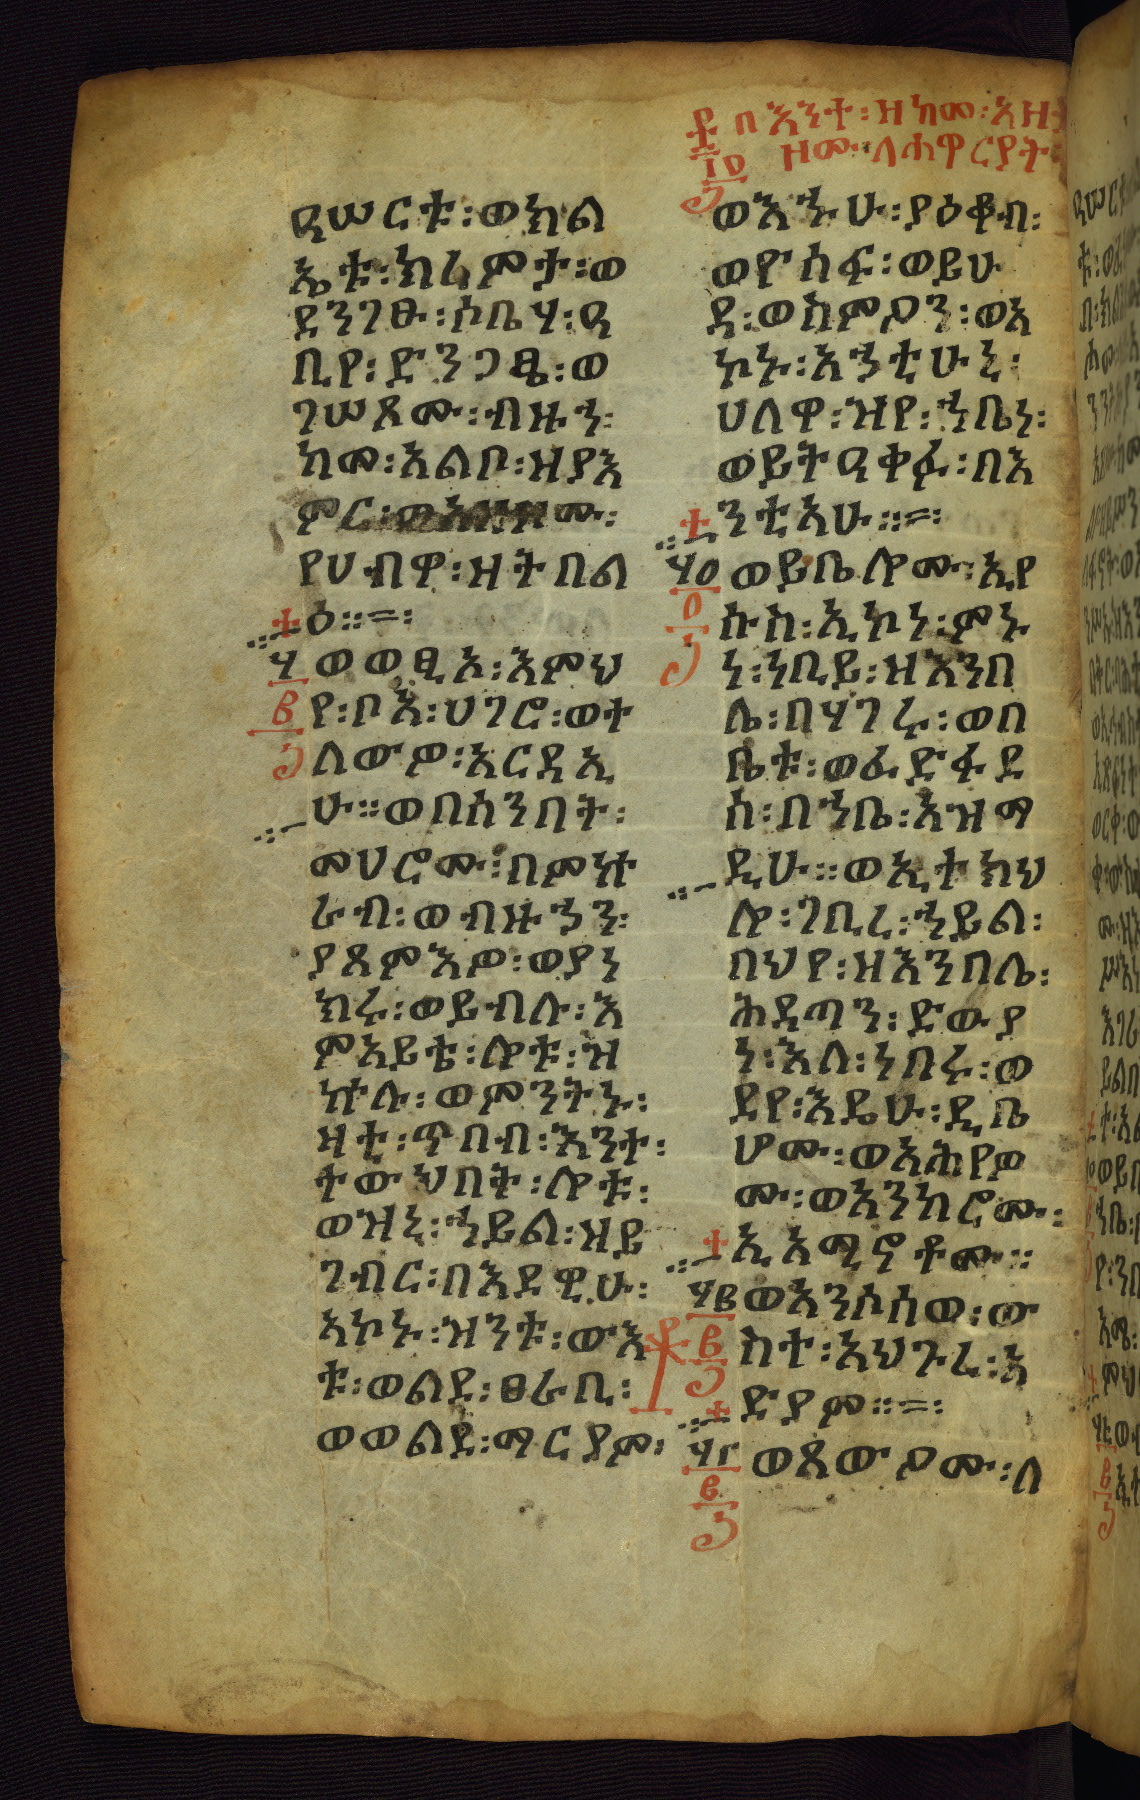 በእንተ፡ዘከመ፡አዘ
ዘሙ፡ለሐዋርያት፡
ዓሠርቱ፡ወክል
ኤቱ፡ክረምታ፡ወ
ደንገፁ፡ሶቤሃ፡ዓ
ቢየ፡ድንጋፄ፡ወ
ገሠጾሙ፡ብዙኀ፡
ከመ፡አልቦ፡ዘያእ
ምር፡
የሀብዋ፡ዘትበል
ዕ።=፡
፶ ወወፂኦ፡እምህ
፪ የ፡ቦአ፡ሀገሮ፡ወተ
ለውዎ፡አርዳኢ
ሁ።ወበሰንበት፡
መሀሮሙ፡በምኵ
ራብ፡ወብዙኃን፡
ያጸምእዎ፡ወያነ
ክሩ፡ወይብሉ፡እ
ምአይቴ፡ሎቱ፡ዝ
ኵሉ፡ወምንትኑ፡
ዛቲ፡ጥበብ፡እንተ፡
ተውህበት፡ሎቱ፡
ወዝኒ፡ኀይል፡ዘይ
ገብር፡በእደዊሁ፡
አኮኑ፡ዝንቱ፡ውእ
ቱ፡ወልደ፡ፀራቢ፡
ወወልደ፡ማርያም፡
ወእኁሁ፡ያዕቆብ፡
ወዮሳፍ፡ወይሁ
ዳ፡ወስምዖን፡ወአ
ኮኑ፡አኃቲሁኒ፡
ሀለዋ፡ዝየ፡ኀቤነ፡
ወይትዓቀፉ፡በእ
ንቲአሁ።=፡
፶፩ ወይቤሎሙ፡ኢየ
ሱስ፡ኢኮነ፡ምኑ
ነ፡ነቢይ፡ዘእንበ
ሌ፡በሃገሩ፡ወበ
ቤቱ፡ወፈድፋደ
ሰ፡በኀቤ፡አዝማ
ዲሁ።ወኢተክህ
ሎ፡ገቢረ፡ኀይል፡
በህየ፡ዘእንበሌ፡
ሕዳጣን፡ድውያ
ነ፡እለ፡ነበሩ፡ወ
ደየ፡እዴሁ፡ዲቤ
ሆሙ፡ወአሕየዎ
ሙ፡ወአንከሮሙ፡
ኢአሚኖቶሙ።
፶፪ ወአንሶሰወ፡ው
፪ ስተ፡አህጉረ፡አ
ድያም።=፡
፶፫ ወጸውዖሙ፡ለ